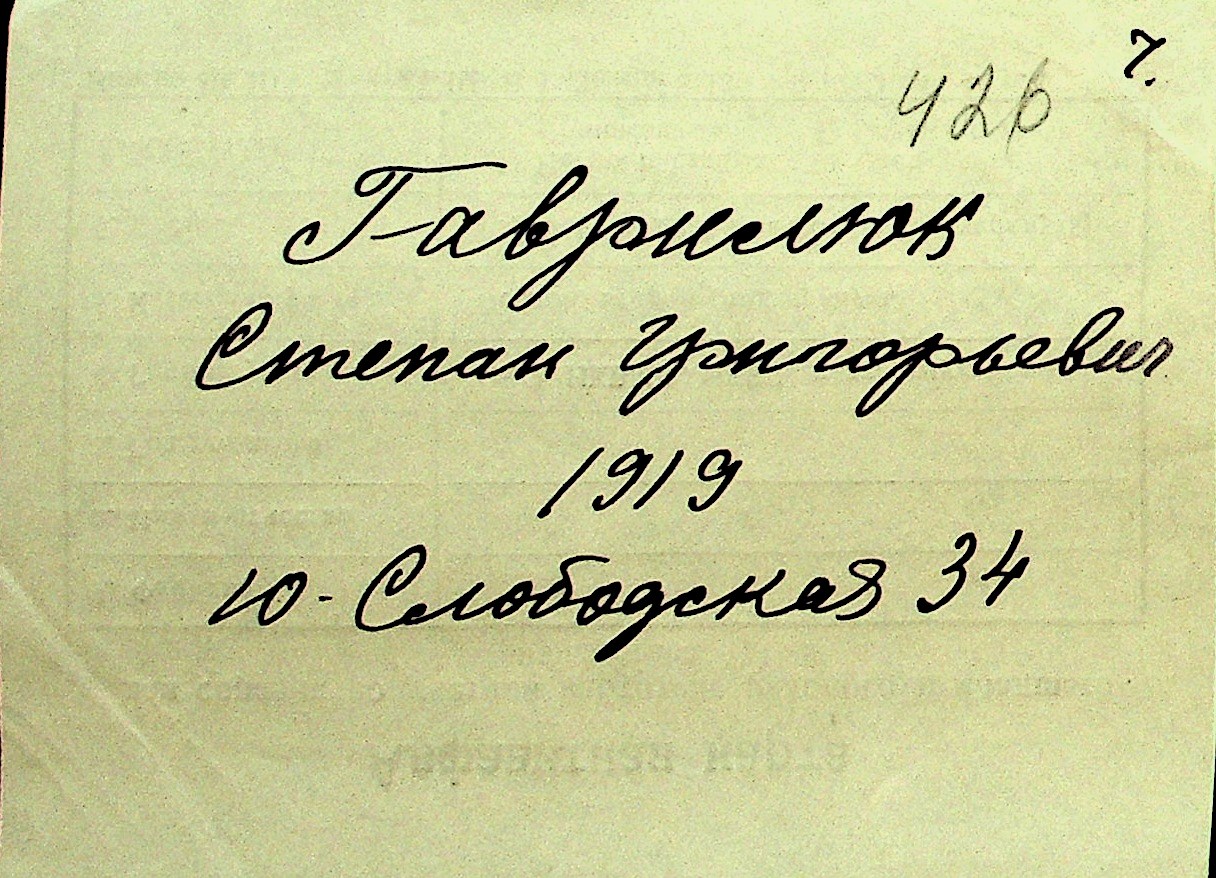 7.
426
Гаврилюк
Степан Григорьевич
1919
Ю-Слободская 34